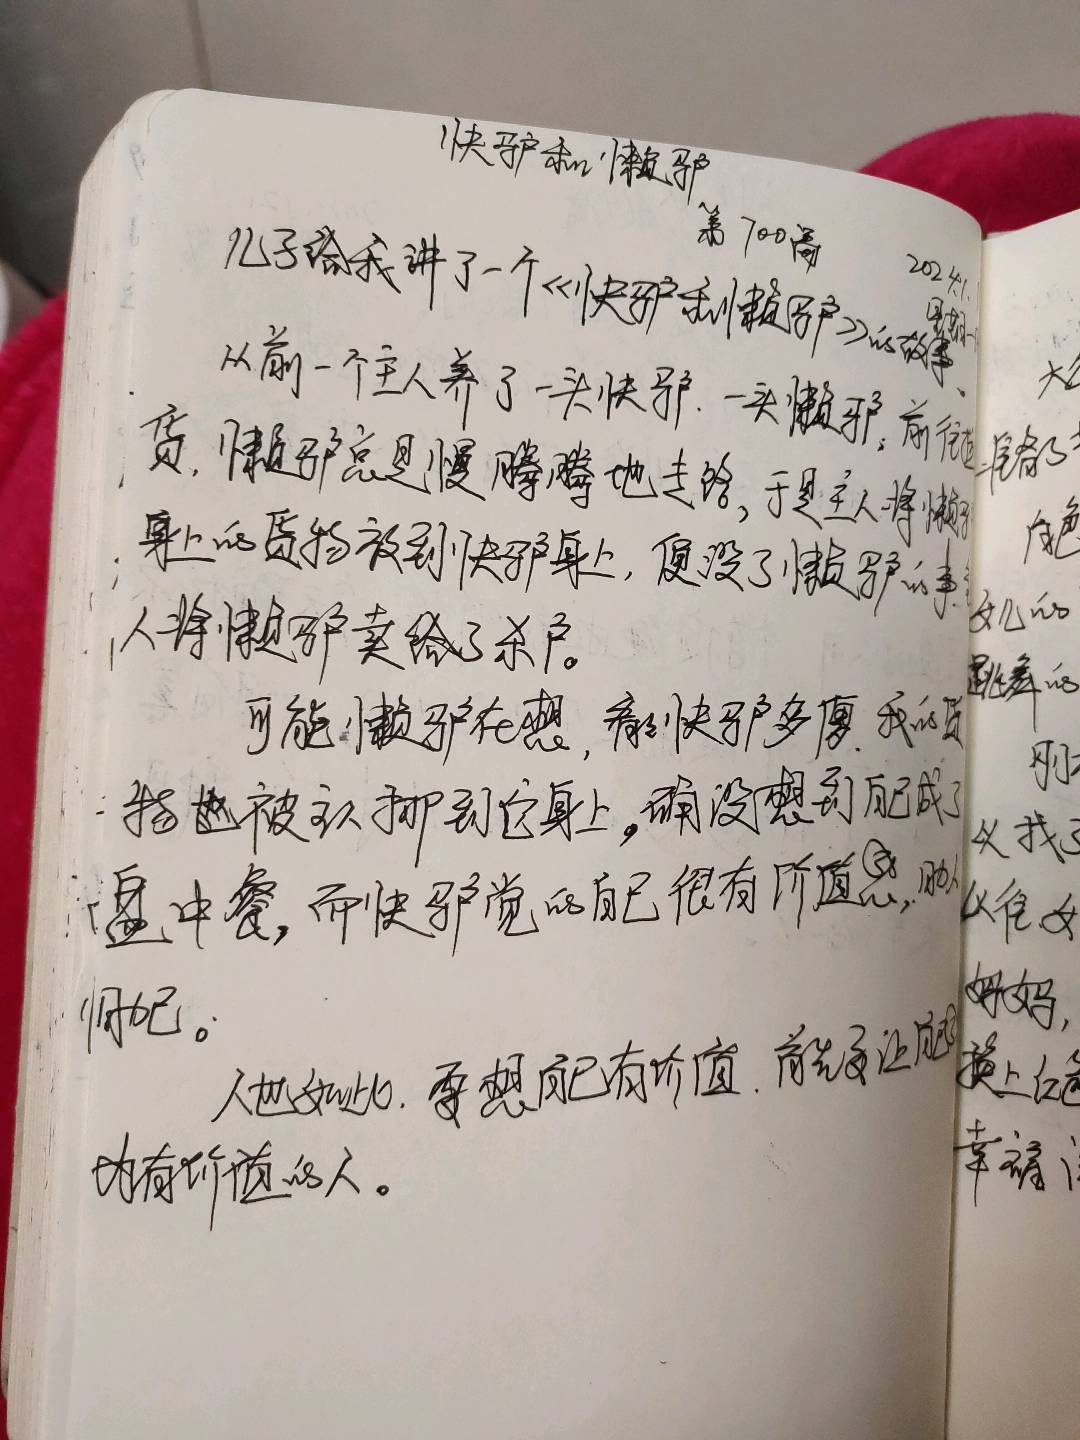 快驴和懒驴
第700篇
2024.1.
星期一
儿子给我讲了一个《快驴和懒驴》的故事、
从前一个主人养了一头快驴.一头懒驴,前往
货.懒驴总是慢腾腾地走路,于是主人将懒驴
身上的货物放到快驴身上,便没了懒驴的事.主
人将懒驴卖给了杀户。
可能懒驴在想,看快驴多厚.我的货
物也被主人挪到它身上。确没想到自己成了
盘中餐,而快驴觉的自己很有价值感,助人
悦己。
人也如此.要想自己有价值.首先要让自己
为有价值的人。
大
准备了
白色
女儿的
跳舞的
刚
又找了
以往.女
妈妈,
换上红色
幸福